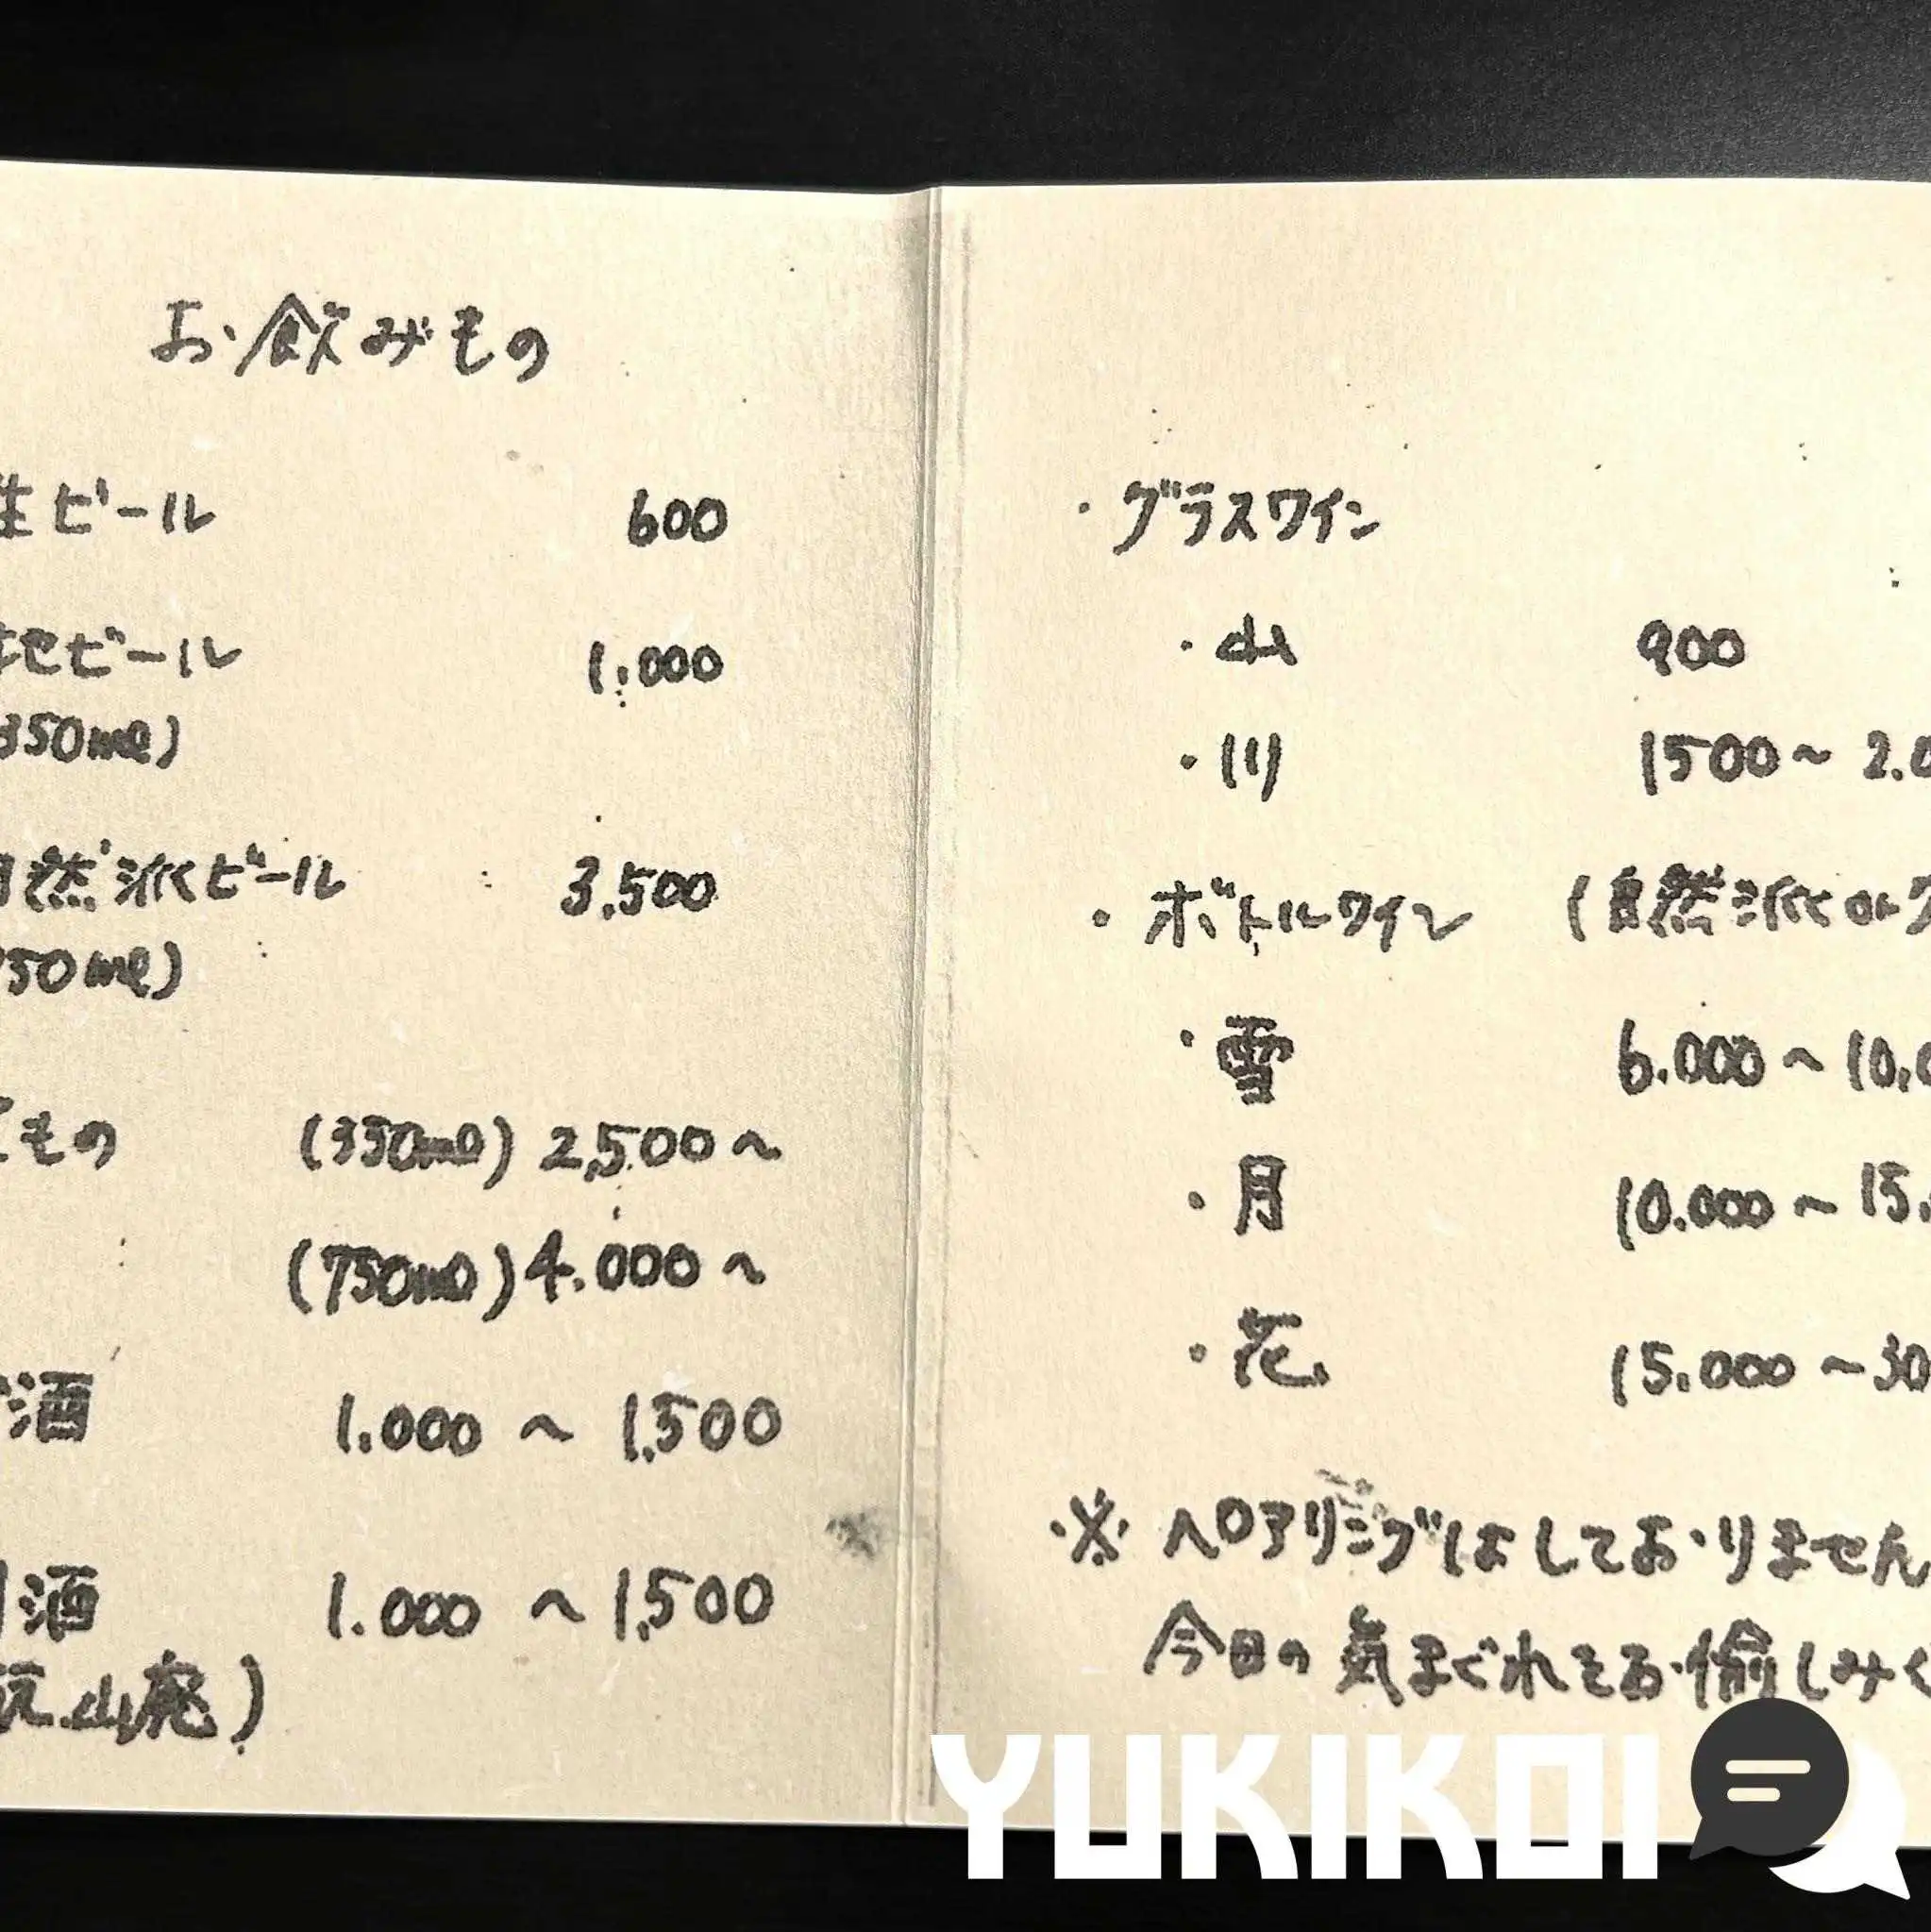 お飲みもの
生ビール 600
ビール 1.000
350ml)
自然派ビール 3.500
750ml)
もの (350ml) 2,500〜
(750ml) 4.000〜
酒 1.000 〜 1.500
酒 1.000 〜 1.500
山廃)
・グラスワイン
・山 900
・川 1500〜 2.0
・ボトルワイン (自然派orク
・雪 6.000〜10.0
・月 10.000〜15.
・花 15.000〜30
※ ペアリングはしておりません
今日の気まぐれをお愉しみく
YUKIKOI